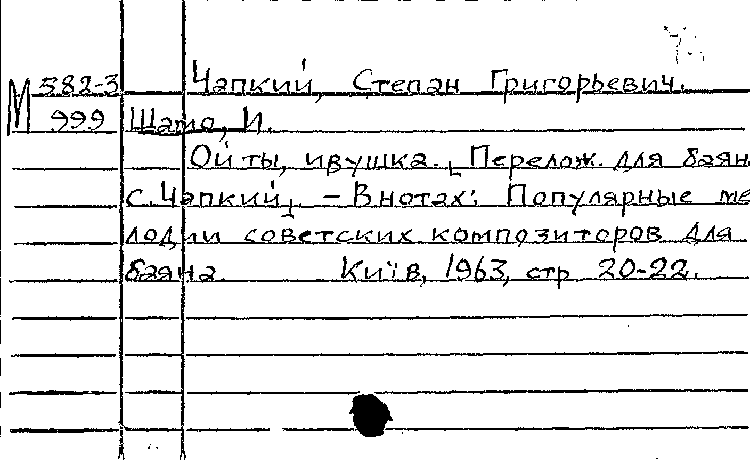 582-3 Чапкий, Степан Григорьевич.
М 999 Шамо, И.
Ой ты, ивушка. [Перелож. для баян
С. Чапкий]. - В нотах: Популярные ме
лодии советских композиторов для
баяна. Київ, 1963, стр 20-22.